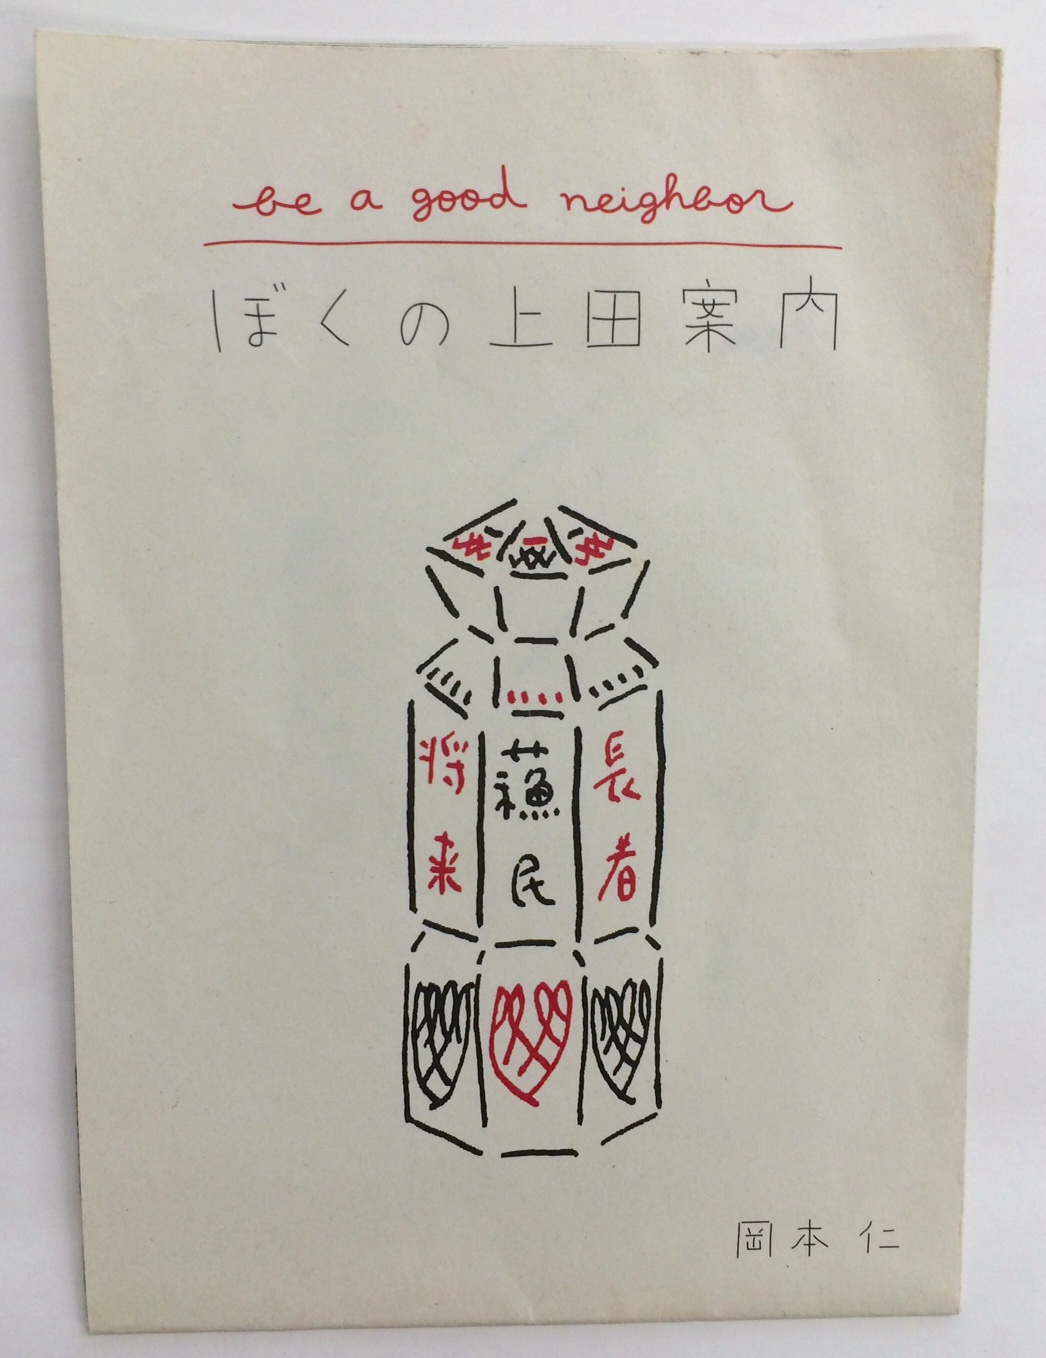 be a good neighbor
ぼくの上田案内
将来
蘓民
長者
岡本 仁